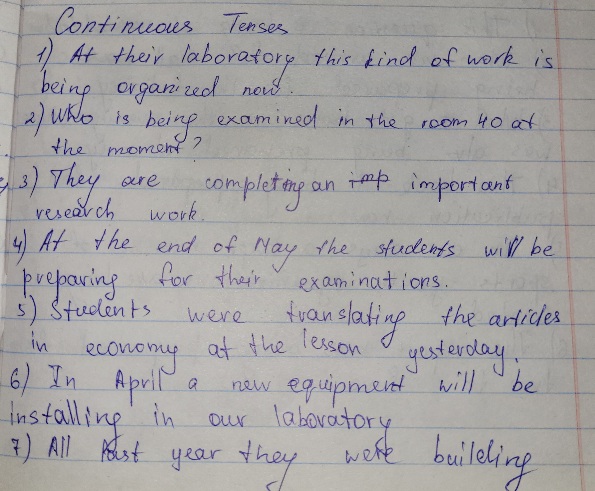 Continuous Tenses
1) At their laboratory this kind of work is
being organized now.
2) Who is being examined in the room 40 at
the moment?
3) They are completing an imp important
research work.
4) At the end of May the students will be
preparing for their examinations.
5) Students were translating the articles
in economy at the lesson yesterday.
6) In April a new equipment will be
installing in our laboratory
7) All last year they were building